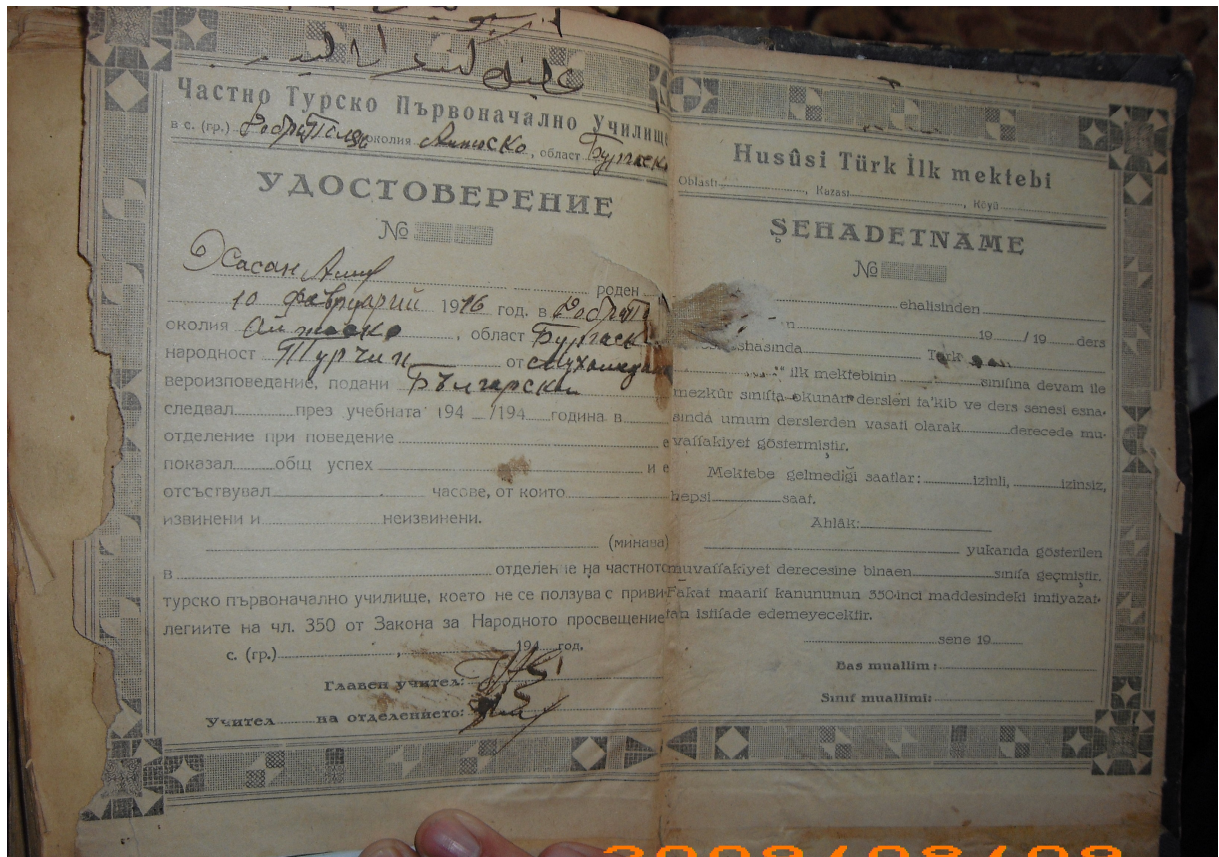 Частно Турско Първоначално Училище
в с. (гр.) Добра Поляна околия Айтоско, област Бургаска
УДОСТОВЕРЕНИЕ
№
Хасан
роден
10 февруарий 1916 год. в
околия Айтоско, област Бургаск
народност Турчин от
вероизповедание, подани Български
следвал през учебната 194 /194 година в
отделение при поведение е
показал общ успех и е
отсъствувал часове, от които
извинени и неизвинени.
(минава)
в отделение на частното
турско първоначално училище, което не се ползува с приви-
легиите на чл. 350 от Закона за Народното просвещение
с. (гр.) , 194 год.
Главен учител:
Учител на отделението:
Husûsi Türk İlk mektebi
Oblastı , Kazası , Köyü
ŞEHADETNAME
№
ehalisinden
19 / 19 ders
Türk
ilk mektebinin sınıfına devam ile
mezkûr sınıfta okunan dersleri ta'kib ve ders senesi esna-
sında umum derslerden vasati olarak derecede mu-
vaffakiyet göstermiştir.
Mektebe gelmediği saatlar: izinli, izinsiz,
hepsi saat.
Ahlâk:
yukarıda gösterilen
muvaffakiyet derecesine binaen sınıfa geçmiştir.
Fakat maarif kanununun 350-inci maddesindeki imtiyazat-
tan istifade edemeyecektir.
sene 19
Bas muallim:
Sınıf muallimi:
2008/08/08